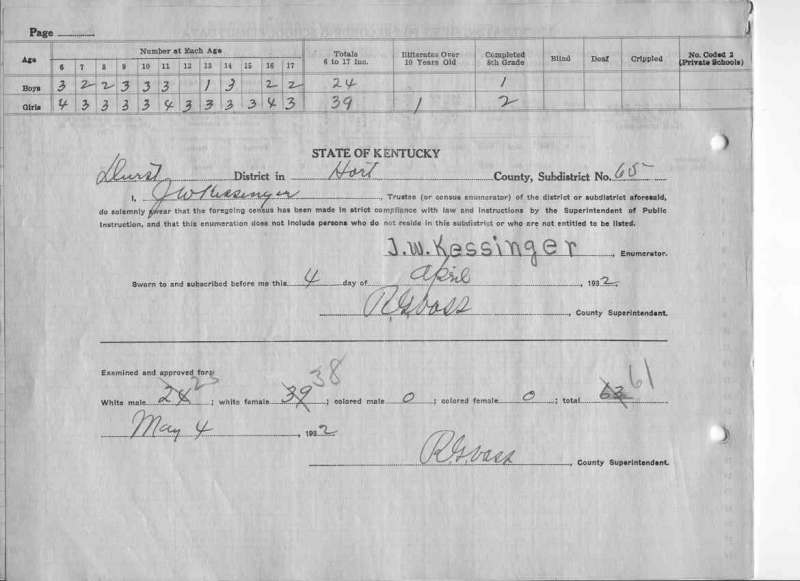 Page
Age Number at Each Age Totals 6 to 17 Inc. Illiterates Over 10 Years Old Completed 8th Grade Blind Deaf Crippled No. Coded 2 (Private Schools)
6 7 8 9 10 11 12 13 14 15 16 17
Boys 3 2 2 3 3 3 1 3 2 2 24 1
Girls 4 3 3 3 3 4 3 3 3 3 4 3 39 1 2
STATE OF KENTUCKY
Durst District in Hart County, Subdistrict No. 65
I, J W Kessinger, Trustee (or census enumerator) of the district or subdistrict aforesaid,
do solemnly swear that the foregoing census has been made in strict compliance with law and instructions by the Superintendent of Public
Instruction, and that this enumeration does not include persons who do not reside in this subdistrict or who are not entitled to be listed.
J.W. Kessinger, Enumerator.
Sworn to and subscribed before me this 4 day of April, 1932.
R G Vass, County Superintendent.
Examined and approved for:
White male 24 23; white female 39 38; colored male 0; colored female 0; total 63 61
May 4, 1932
R. G. Vass, County Superintendent.